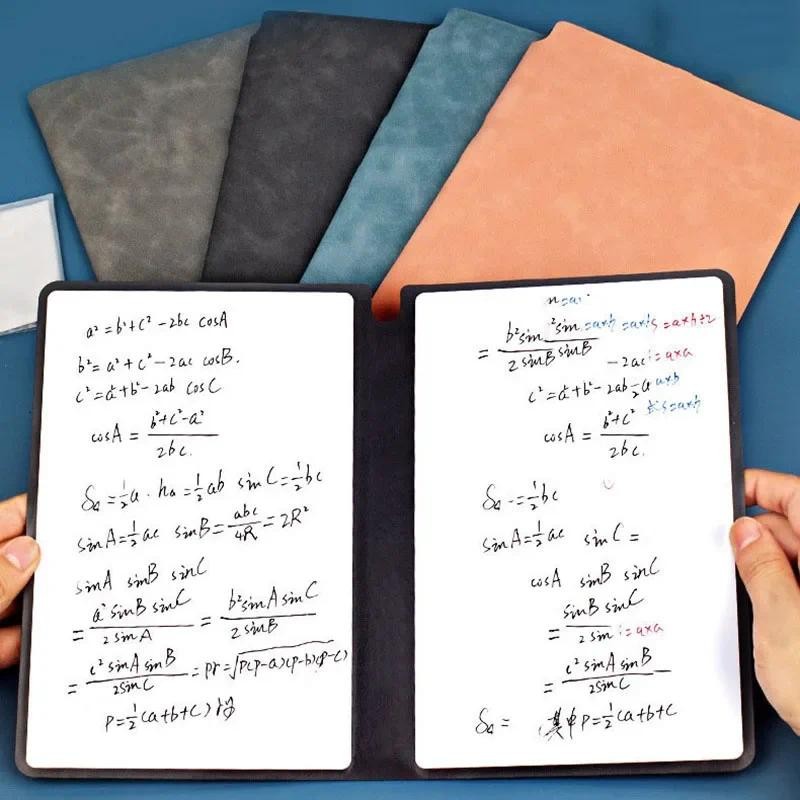 a² = b² + c² - 2bc cosA
b² = a² + c² - 2ac cosB.
c² = a² + b² - 2ab cosC
cosA = (b² + c² - a²) / 2bc.
S△ = ½a · ha = ½ab sinC = ½bc
sinA = ½ac sinB = abc / 4R = 2R²
sinA sinB sinC
= a² sinB sinC / 2sinA = b² sinA sinC / 2sinB
= c² sinA sinB / 2sinC = pr = √p(p-a)(p-b)(p-c)
P = ½(a+b+c)
= b² sin² sin / 2 sinB sinB = a×h = a×h S = a×h÷2
-2ac = a×a
c² = a² + b² - 2ab ½ a a×b
cosA = b² + c² / 2bc. S = a×h
S△ = ½bc
sinA = ½ac sinC =
cosA sinB sinC
= sinB sinC / 2sin = a×a
= c² sinA sinB / 2sinC
S△ = 其中P = ½(a+b+c